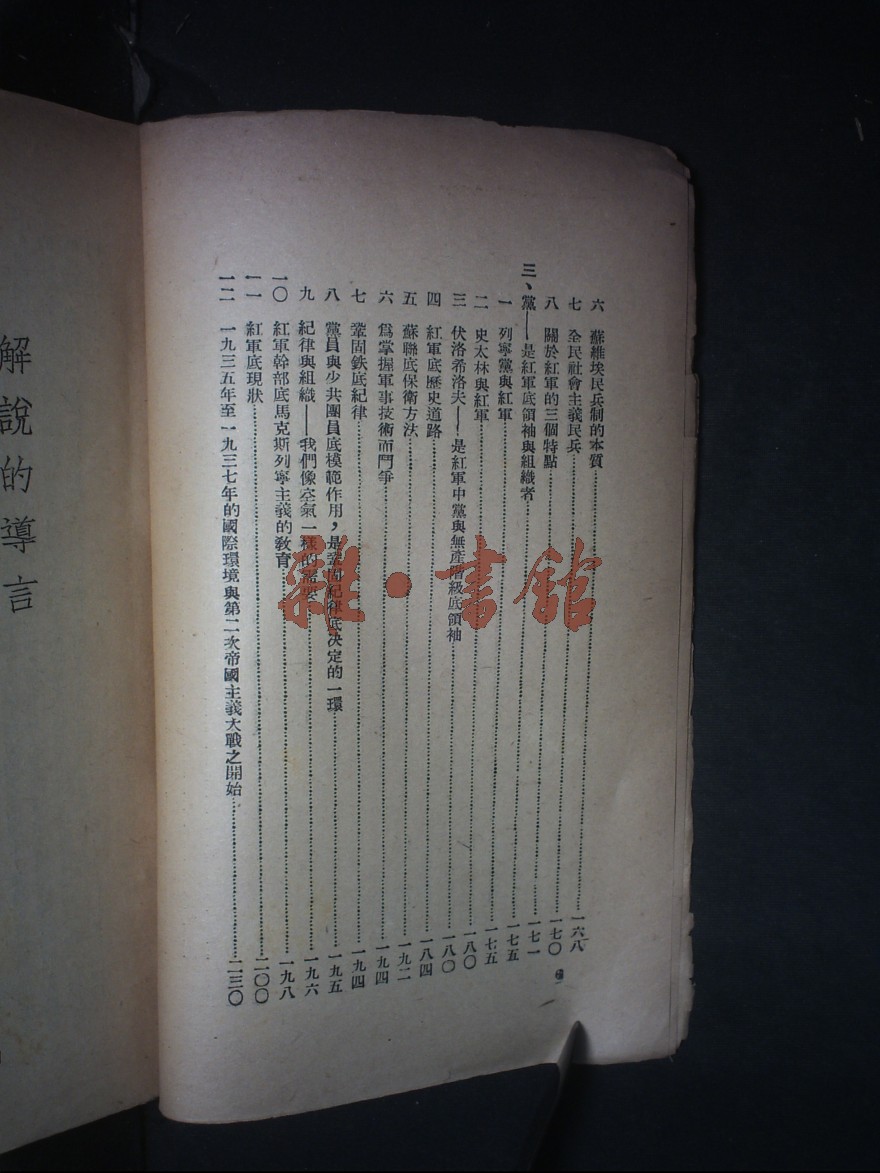 六 蘇維埃民兵制的本質……一六八
七 全民社會主義民兵……一七〇
八 關於紅軍的三個特點……一七一
三、黨——是紅軍底領袖與組織者……一七五
一 列寧黨與紅軍……一七五
二 史太林與紅軍……一八〇
三 伏洛希洛夫——是紅軍中黨與無產階級底領袖……一八〇
四 紅軍底歷史道路……一八四
五 蘇聯底保衛方法……一九二
六 爲掌握軍事技術而鬥爭……一九四
七 鞏固鉄底紀律……一九四
八 黨員與少共團員底模範作用，是鞏固紀律底決定的一環……一九五
九 紀律與組織——我們像空氣一樣的需要……一九六
一〇 紅軍幹部底馬克斯列寧主義的教育……一九八
一一 紅軍底現狀……二〇〇
一二 一九三五年至一九三七年的國際環境與第二次帝國主義大戰之開始……二三〇
解說的導言
雜·書館